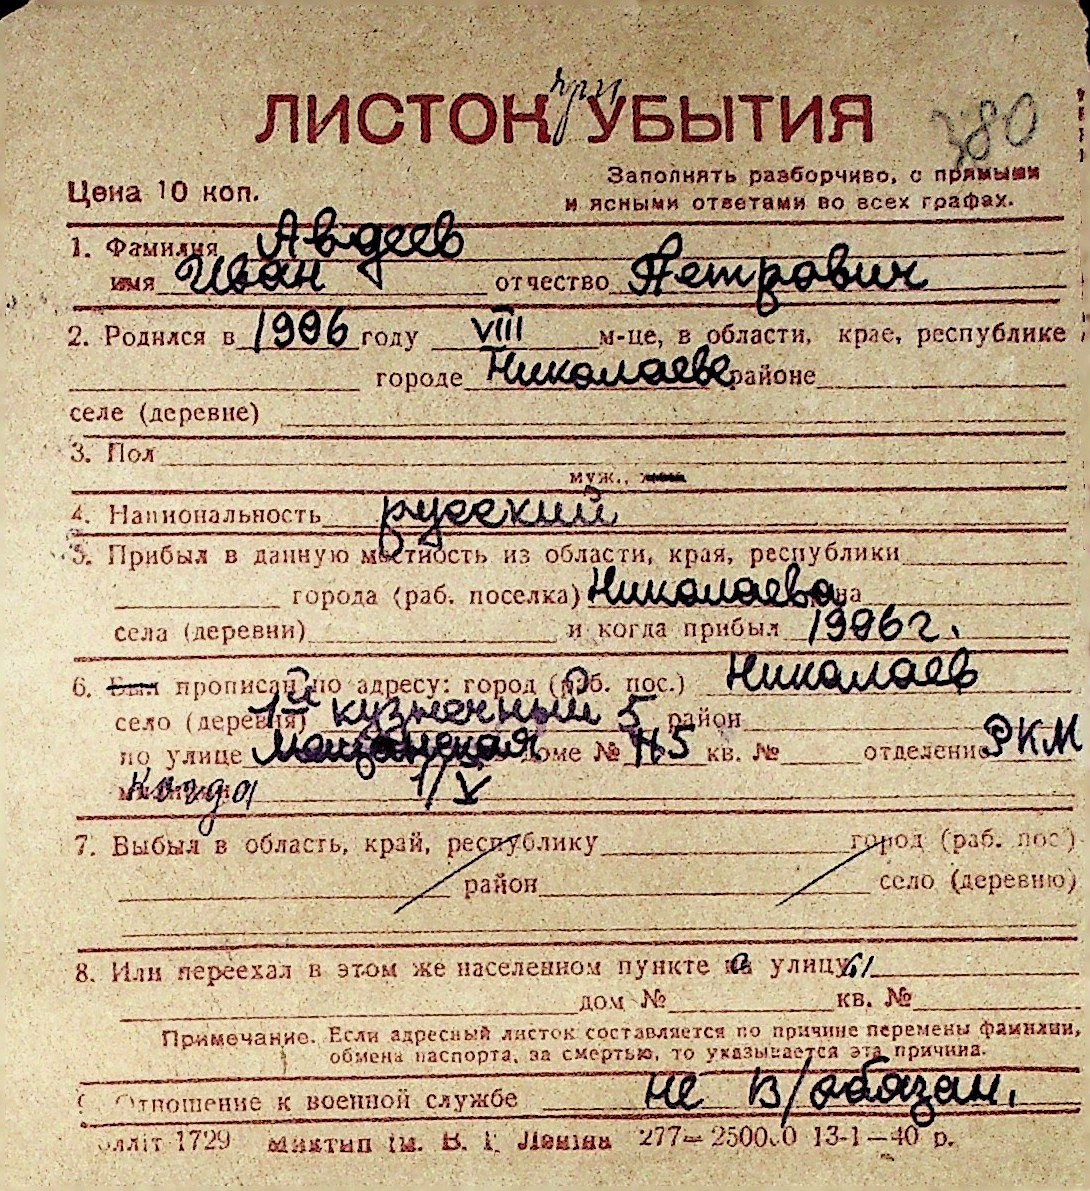 ЛИСТОК при УБЫТИЯ
380
Цена 10 коп.
Заполнять разборчиво, с прямыми
и ясными ответами во всех графах.
1. Фамилия Авдеев
имя Иван отчество Петрович
2. Родился в 1996 году VIII м-це, в области, крае, республике
городе Николаеве районе
селе (деревне)
3. Пол
муж.,
4. Национальность русский
5. Прибыл в данную местность из области, края, республики
города (раб. поселка) Николаева
села (деревни) и когда прибыл 1996 г.
6. Был прописан по адресу: город (раб. пос.) Николаев
село (деревня) 1й кузнечный 5 район
по улице Мещанская доме № 45 кв. № отделение РКМ
милиции Когда 1/V
7. Выбыл в область, край, республику город (раб. пос.)
район село (деревню)
8. Или переехал в этом же населенном пункте улицу
дом № кв. №
Примечание. Если адресный листок составляется по причине перемены фамилии,
обмена паспорта, за смертью, то указывается эта причина.
Отношение к военной службе не в/обязан.
1729 В. Леніна 277—250000 13-1—40 р.